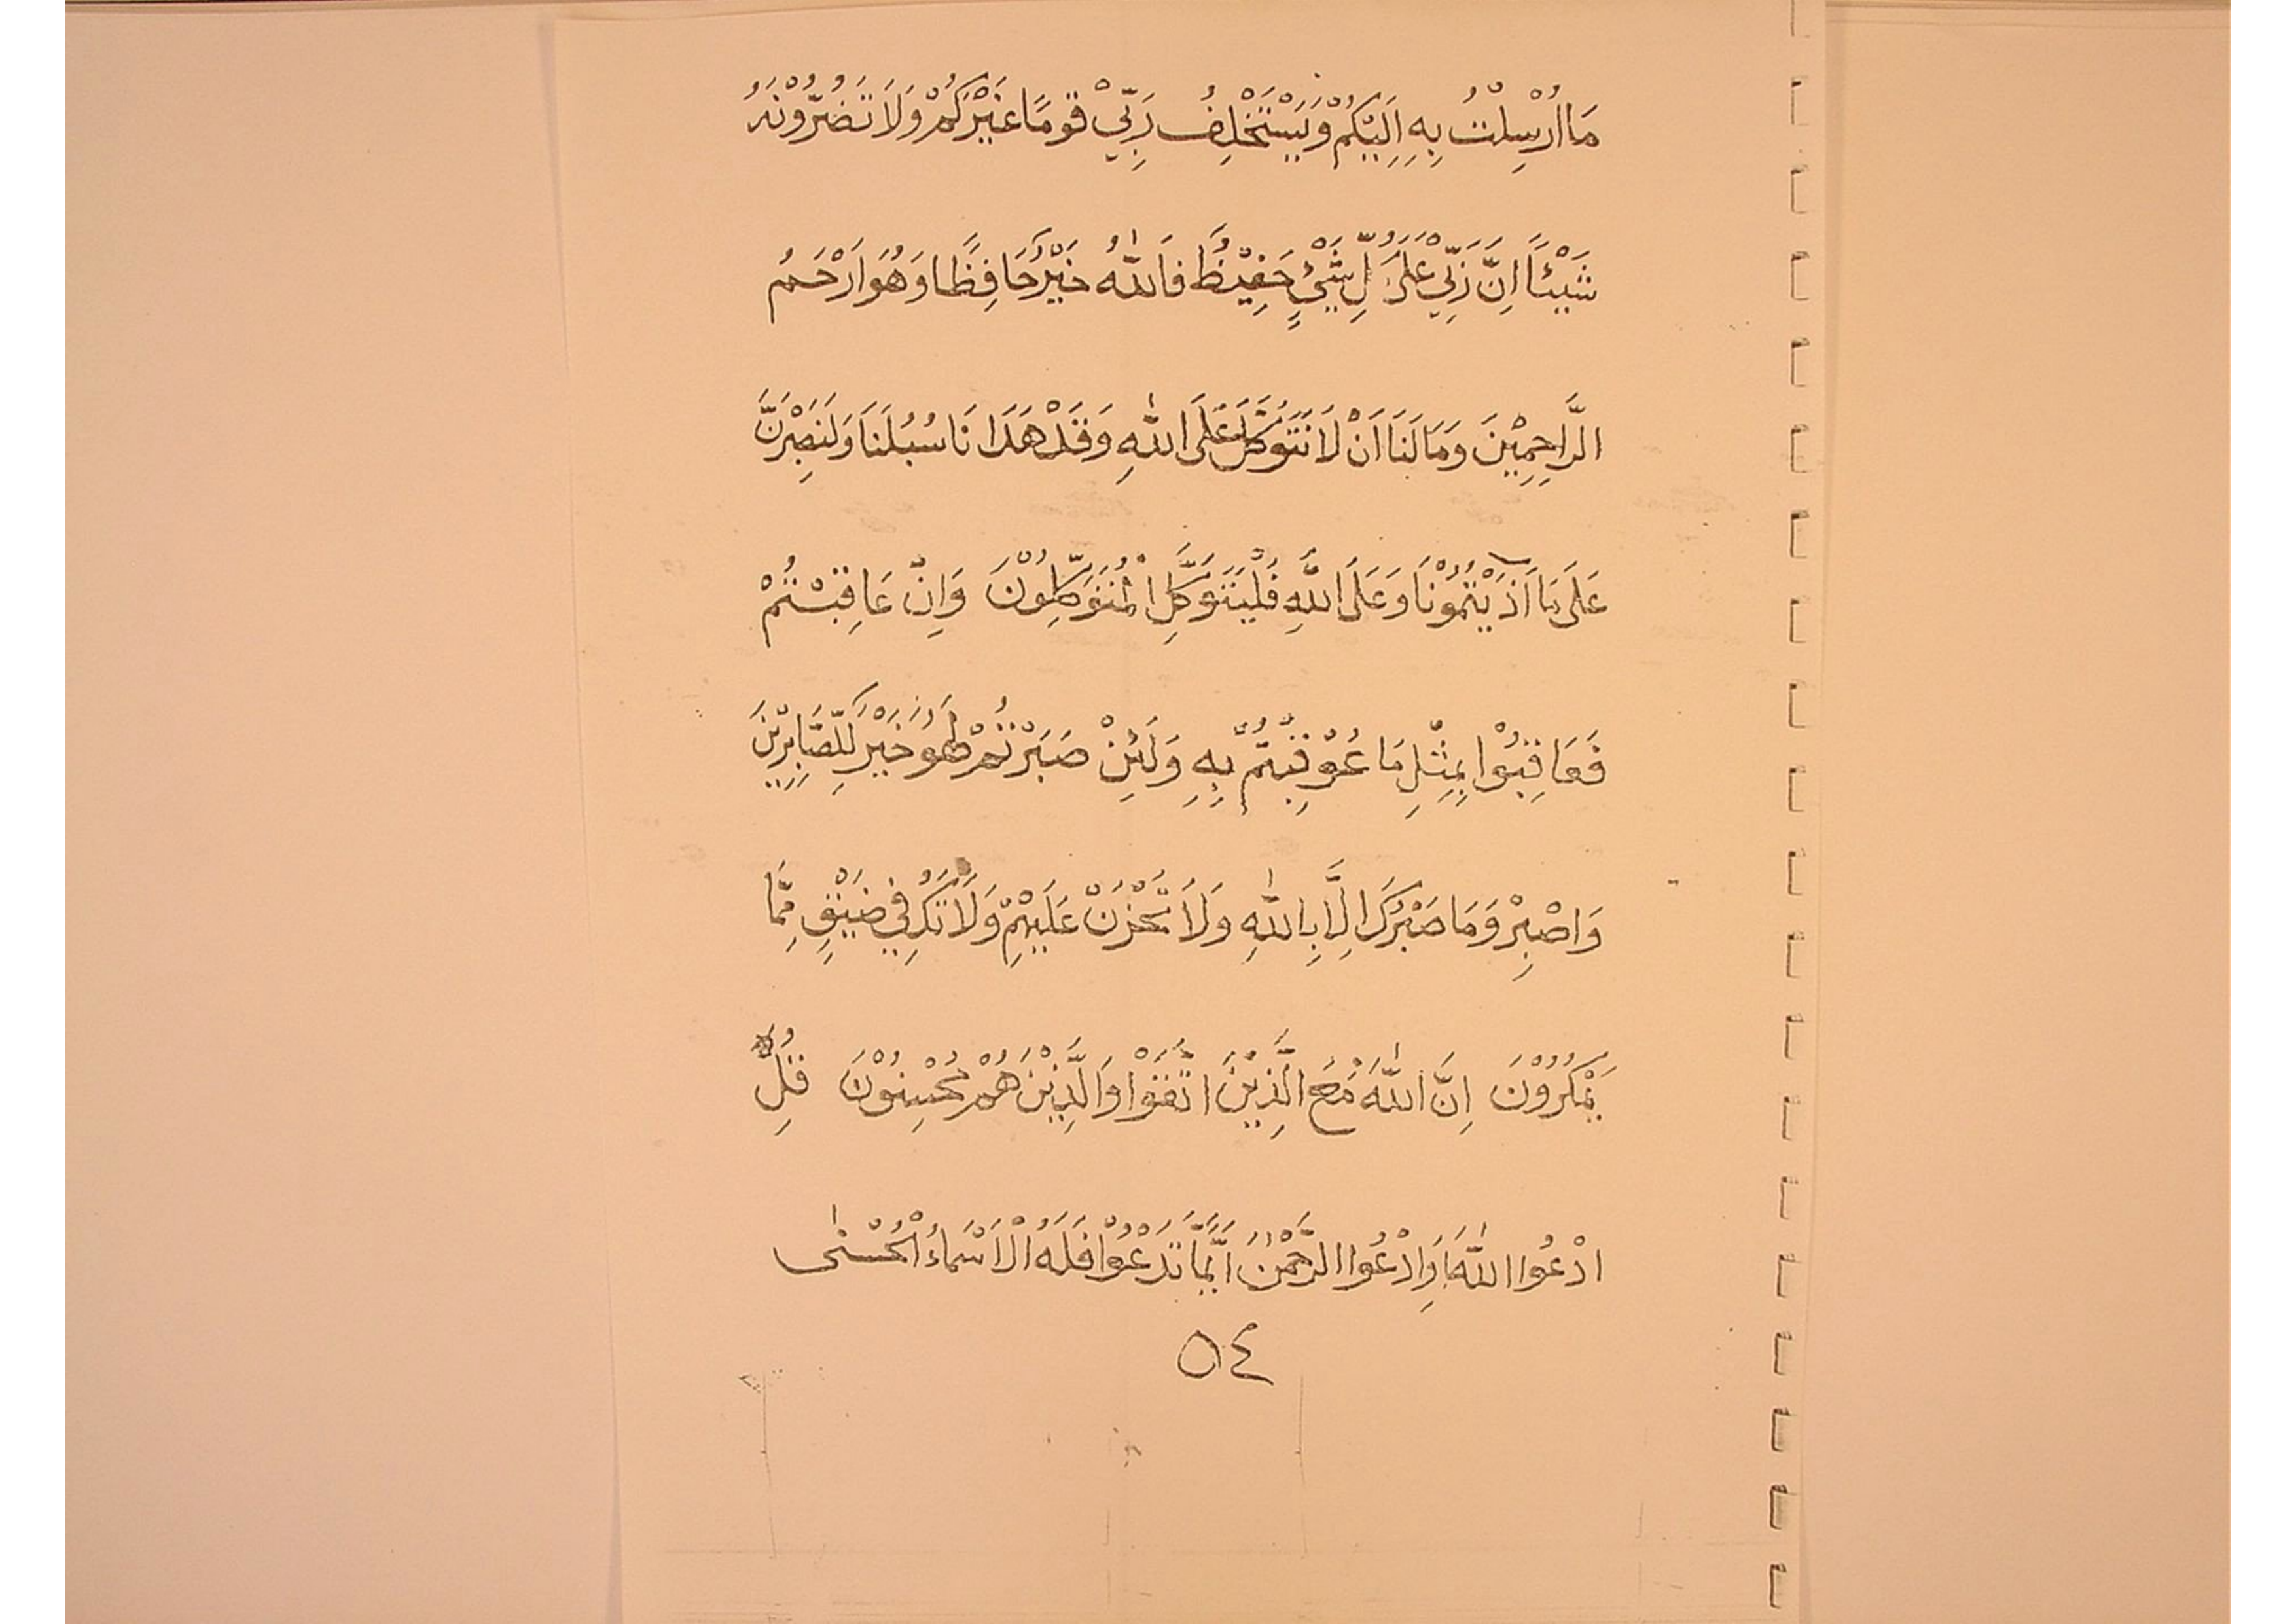 مَا اُرْسِلْتُ بِهِ اِلَيْكُمْ وَيَسْتَخْلِفُ رَبِّيْ قَوْمًا غَيْرَكُمْ وَلَا تَضُرُّوْنَهُ
شَيْئًا اِنَّ رَبِّيْ عَلَى كُلِّ شَيْئٍ حَفِيْظٌ فَاللّٰهُ خَيْرٌ حَافِظًا وَهُوَ اَرْحَمُ
الرَّاحِمِيْنَ وَمَا لَنَا اَنْ لَا نَتَوَكَّلَ عَلَى اللّٰهِ وَقَدْ هَدَا نَا سُبُلَنَا وَلَنَصْبِرَنَّ
عَلَى مَا آذَيْتُمُوْنَا وَعَلَى اللَّهِ فَلْيَتَوَكَّلِ الْمُتَوَكِّلُوْنَ وَاِنْ عَاقَبْتُمْ
فَعَاقِبُوْا بِمِثْلِ مَا عُوْقِبْتُمْ بِهِ وَلَئِنْ صَبَرْتُمْ لَهُوَ خَيْرٌ لِّلصَّابِرِيْنَ
وَاصْبِرْ وَمَا صَبْرُكَ اِلَّا بِاللّٰهِ وَلَا تَحْزَنْ عَلَيْهِمْ وَلَا تَكُ فِيْ ضَيْقٍ مِمَّا
يَمْكُرُوْنَ اِنَّ اللّٰهَ مَعَ الَّذِيْنَ اتَّقَوْا وَالَّذِيْنَ هُمْ مُحْسِنُوْنَ قُلِ
ادْعُوا اللّٰهَ اَوِادْعُوا الرَّحْمٰنَ اَيًّامَّا تَدْعُوْا فَلَهُ الْاَسْمَاءُ الْحُسْنٰى
٥٤